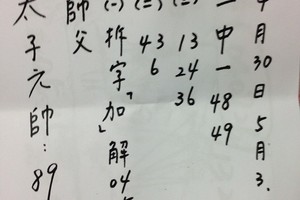 月30日5月3.
中一 48 49
13 24 36
(二) 43 6
(一) 拆字「加」解 04
師父
太子元帥:89